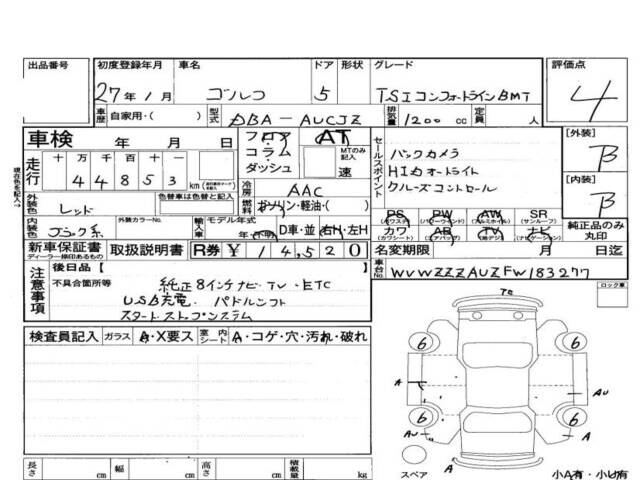 出品番号 初度登録年月 車名 ドア 形状 グレード 評価点
27年 1月 ゴルフ 5 TSIコンフォートラインBMT 4
車歴 自家用・( ) 型式 DBA-AUCJZ 排気量 1200 cc 定員 人
車検 年 月 日 フロア AT セールスポイント [外装]
現在色を記入→ 走行 十 万 千 百 十 コラム MTのみ記入 バックカメラ B
44853 km ダッシュ 速 HIDオートライト
外装色 レッド 色替車は色替と記入 冷房 AAC クルーズコントロール [内装]
燃料 ガソリン・軽油・( ) B
内装色 ブラック系 外装カラーNo. 輸入車 モデル年式 D車・並 右H・左H PS PW AW SR
年 不明 (パワステ) (パワーウインド) (アルミホイル) (サンルーフ)
カワ AB TV ナビ 純正品のみ丸印
(カワシート) (エアバッグ) (ナビゲーション)
新車保証書 取扱説明書 R券 ¥ 14,520 名変期限 月 日迄
ディーラー捺印あるもの
注意事項 後日品 [ ] 車台No. WVWZZZAUZFW183277
不具合箇所等 純正8インチナビ・TV・ETC ロック車
USB充電 パドルシフト
スタートストップシステム
検査員記入 ガラス A・X要ス 室内シート A・コゲ・穴・汚れ・破れ
6 6
A AU
6 6
AU A
A
スペア 小A有・小U有
長さ cm 幅 cm 高さ cm 積載量 kg